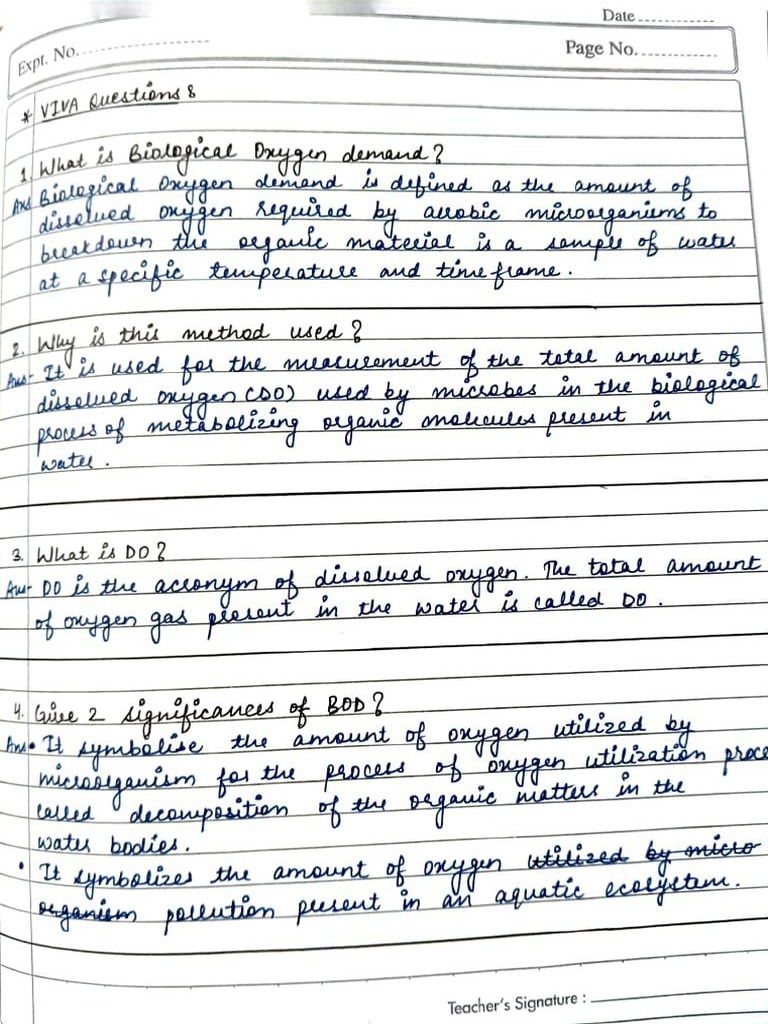 Date ............
Expt. No. ....................
Page No. ............
* VIVA Questions :
1. What is Biological Oxygen demand?
Ans Biological Oxygen demand is defined as the amount of
dissolved oxygen required by aerobic microorganisms to
breakdown the organic material is a sample of water
at a specific temperature and time frame.
2. Why is this method used?
Ans- It is used for the measurement of the total amount of
dissolved oxygen (DO) used by microbes in the biological
process of metabolizing organic molecules present in
water.
3. What is DO?
Ans- DO is the acronym of dissolved oxygen. The total amount
of oxygen gas present in the water is called DO.
4. Give 2 significances of BOD?
Ans • It symbolise the amount of oxygen utilized by
microorganism for the process of oxygen utilization proce
called decomposition of the organic matters in the
water bodies.
• It symbolizes the amount of oxygen utilized by micro
organism pollution present in an aquatic ecosystem.
Teacher's Signature : ____________